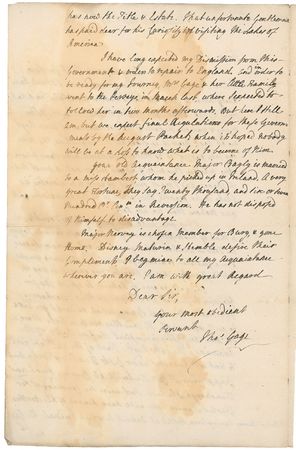 has now the Title & Estate. That unfortunate Gentleman
has paid dear for his Curiosity in Visiting the Lakes of
America
I have long expected my Dismission from this
Government & orders to repair to England. And in order to
be ready for my Journey Mrs Gage & her little Family
went to the Jerseys in March last, where I proposed to
follow her in two months afterwards. But here I still
am, but we expect final Regulations for these Govern
ments by the August Packet, when it is hoped nobody
will be at a loss to know what is to become of Him
Your old Acquaintance Major Bayly is married
to a Miss Lambart whom he picked up in Ireland. A very
great Fortune, they say Twenty thousand and six or seven
hundred in Reversion. He has not disposed
of himself to disadvantage.
Major Hervey is chosen Member for Bury & gone
Home. Disney, Maturin & Kemble desire their
Compliments. I beg mine to all my Acquaintance
wherever you are. I am with great Regard
Dear Sir,
Your most obedient
Servant
Thos Gage